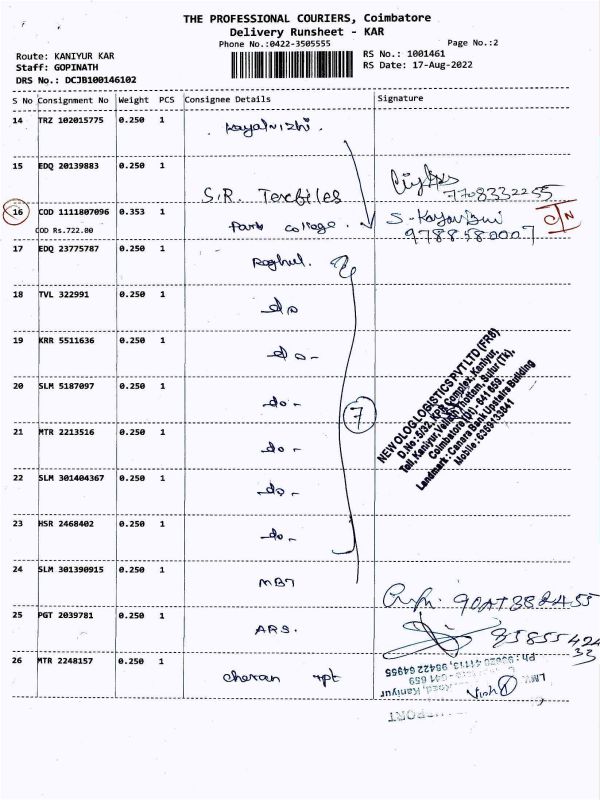 THE PROFESSIONAL COURIERS, Coimbatore
Delivery Runsheet - KAR
Phone No.:0422-3505555
Page No.:2
Route: KANIYUR KAR
RS No.: 1001461
Staff: GOPINATH
RS Date: 17-Aug-2022
DRS No.: DCJB100146102
S No Consignment No Weight PCS Consignee Details Signature
14 TRZ 102015775 0.250 1 Kayalvizhi.
15 EDQ 20139883 0.250 1
S.R. Textiles 7708332255
16 COD 1111807096 0.353 1 Park college.
COD Rs.722.00 9788580007
17 EDQ 23775787 0.250 1 Raghul.
18 TVL 322991 0.250 1 do
19 KRR 5511636 0.250 1 do-
20 SLM 5187097 0.250 1 do-
7
21 MTR 2213516 0.250 1 do-
22 SLM 301404367 0.250 1 do-
23 HSR 2468402 0.250 1 do-
NEW OLOG LOGISTICS PVT LTD (FR8)
D.No: 5/32, KPS Complex, Kaniyur,
Toll, Kaniyur, Thottam, Sulur (Tk),
Coimbatore (Dt) - 641 659.
Landmark: Canara Bank Upstairs Building
Mobile: 6369133841
24 SLM 301390915 0.250 1 MBT
25 PGT 2039781 0.250 1 ARS.
26 MTR 2248157 0.250 1 cheran tpt
Road, Kaniyur
641 659